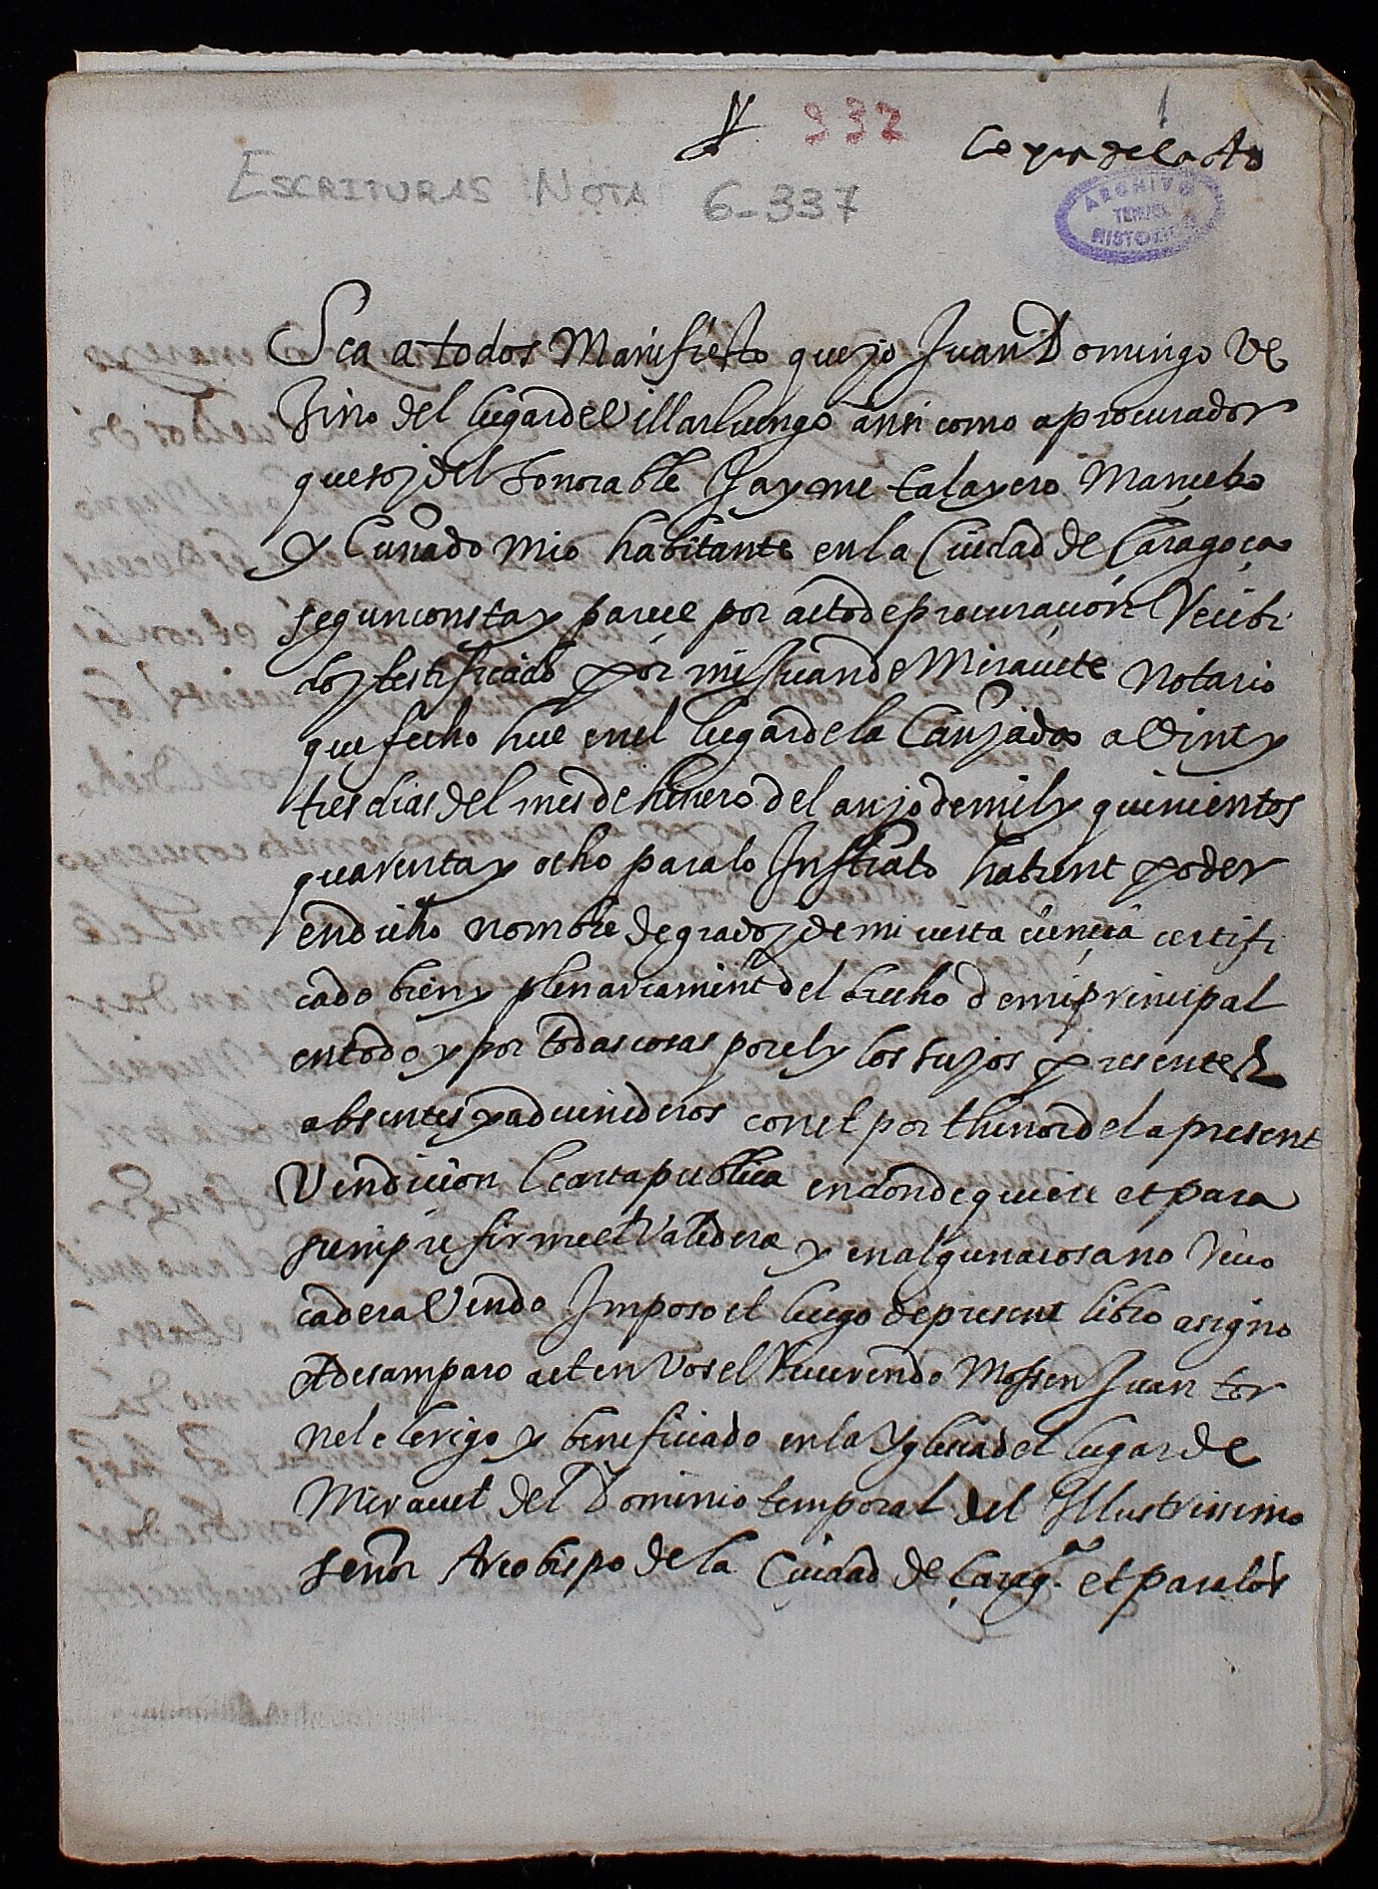 332
Copia del acto
ESCRITURAS NOTA 6-337
ARCHIVO
TERUEL
HISTORICO
Sea a todos Manifiesto que yo Juan Domingo ve
zino del lugar de Villarluengo ansi como a procurador
que soy del honorable Jayme talayero Mancebo
y Cunado mio habitante en la Ciudad de Caragoça
segun consta y parece por acto de procuraçion Recibi
do y testificado por mi Juan de Miravete Notario
que fecho hue en el lugar de la Canyada a Vint y
tres dias del mes de henero del anyo de mil y quinientos
quarenta y ocho para lo Infrascto habient poder
en dicho nombre de grado y de mi cierta ciençia certifi
cado bien y plenariament del drecho de mi principal
en todo y por todas cosas por el y los suyos presentes
absentes y advenideros con el por thenor de la present
Vendicion Carta publica en donde quiere et para
siempre firme et Valedera y en alguna cosa no revo
cadera Vendo Imposo et luego de present libro asigno
et desamparo a et en Vos el Reverendo Mossen Juan tor
nel clerigo y beneficiado en la Yglesia del lugar de
Miravet del Dominio temporal del Illustrissimo
señor Arcobispo de la Ciudad de Carag.ª et para los